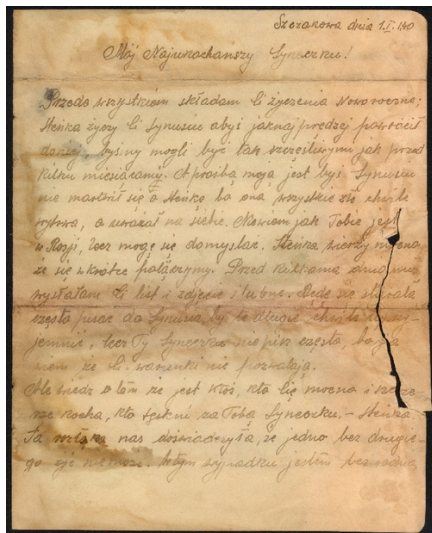 Szczakowa dnia 1.I.40
Mój Najukochańszy Syneczku!
Przede wszystkiem składam Ci życzenia Noworoczne;
Heńka życzy Ci Synusiu abyś jaknajprędzej powrócił
do niej, byśmy mogli być tak szczęśliwymi jak przed
kilku miesiącami. A prośba moja jest byś Synusiu
nie martwił się o Heńkę, bo ona wszystkie złe chwile
a uważał na siebie. Nie wiem jak Tobie jest
w Rosji, lecz mogę się domyślać. Heńka wierzy mocno
że się wkrótce połączymy. Przed kilkoma dniami
wysłałam Ci list i zdjęcie ślubne. Będę się starała
często pisać do Synusia, by te długie chwile
jemnie, lecz Ty Syneczku nie pisz często, bo ja
wiem że Ci warunki nie pozwalają.
Ale wiedz o tem że jest ktoś, kto Cię mocno i szcze-
rze kocha, kto tęskni za Tobą Syneczku, – Heńka.
Ta rozłąka nas doświadczyła, że jedno bez drugie-
go żyć nie może. jestem bez